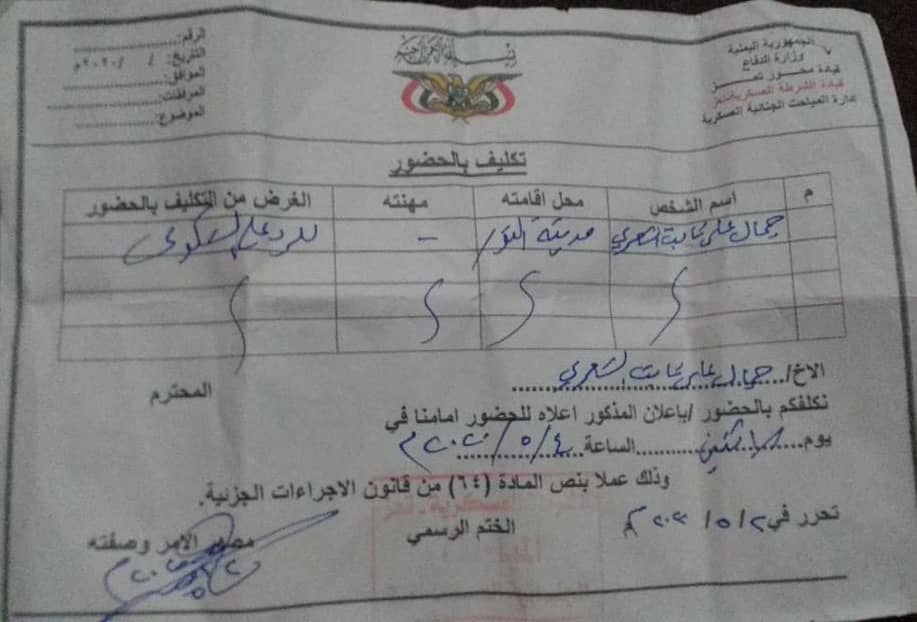 الجمهورية اليمنية
وزارة الدفاع
قيادة محور تعز
قيادة الشرطة العسكرية تعز
ادارة المباحث الجنائية العسكرية
بسم الله الرحمن الرحيم
الرقم:
التاريخ: / /٢٠٢٠م
الموافق:
المرفقات:
الموضوع:
تكليف بالحضور
م اسم الشخص محل اقامته مهنته الغرض من التكليف بالحضور
جمال علي ثابت الشعري مدينة النور - للرد على الشكوى
الاخ/ جمال علي ثابت الشعري المحترم
نكلفكم بالحضور /بإعلان المذكور اعلاه للحضور امامنا في
يوم الاثنين الساعة ٤/٥/٢٠٢٠م
وذلك عملا بنص المادة (٦٤) من قانون الاجراءات الجزئية.
تحرر في ٢/٥/٢٠٢٠م الختم الرسمي مصدر الامر وصفته